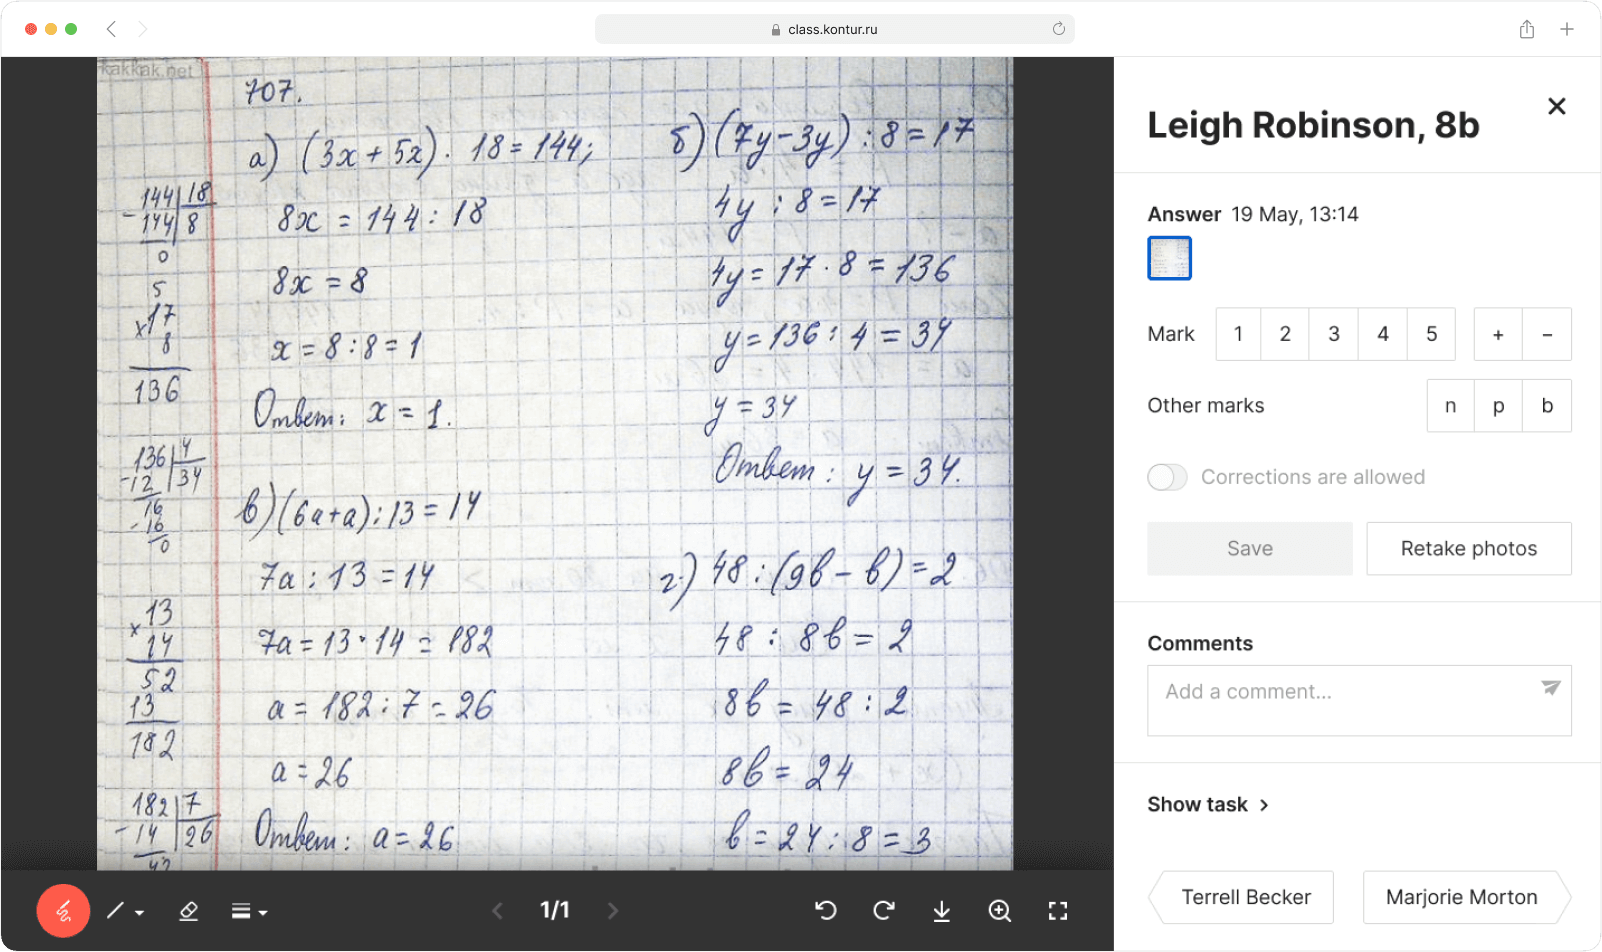 class.kontur.ru
kakkak.net
707.
а) (3x + 5x) · 18 = 144;
8x = 144 : 18
8x = 8
x = 8 : 8 = 1
Ответ: x = 1.
144 18
- 144 8
0
5
x 17
8
136
136 4
- 12 34
16
- 16
0
x 13
14
52
13
182
182 7
- 14 26
42
б) (7y - 3y) : 8 = 17
4y : 8 = 17
4y = 17 · 8 = 136
y = 136 : 4 = 34
y = 34
Ответ: y = 34.
в) (6a + a) : 13 = 14
7a : 13 = 14
7a = 13 · 14 = 182
a = 182 : 7 = 26
a = 26
Ответ: a = 26
г) 48 : (9b - b) = 2
48 : 8b = 2
8b = 48 : 2
8b = 24
b = 24 : 8 = 3
1/1
Leigh Robinson, 8b
Answer 19 May, 13:14
Mark 1 2 3 4 5 + −
Other marks n p b
Corrections are allowed
Save Retake photos
Comments
Add a comment...
Show task
Terrell Becker Marjorie Morton